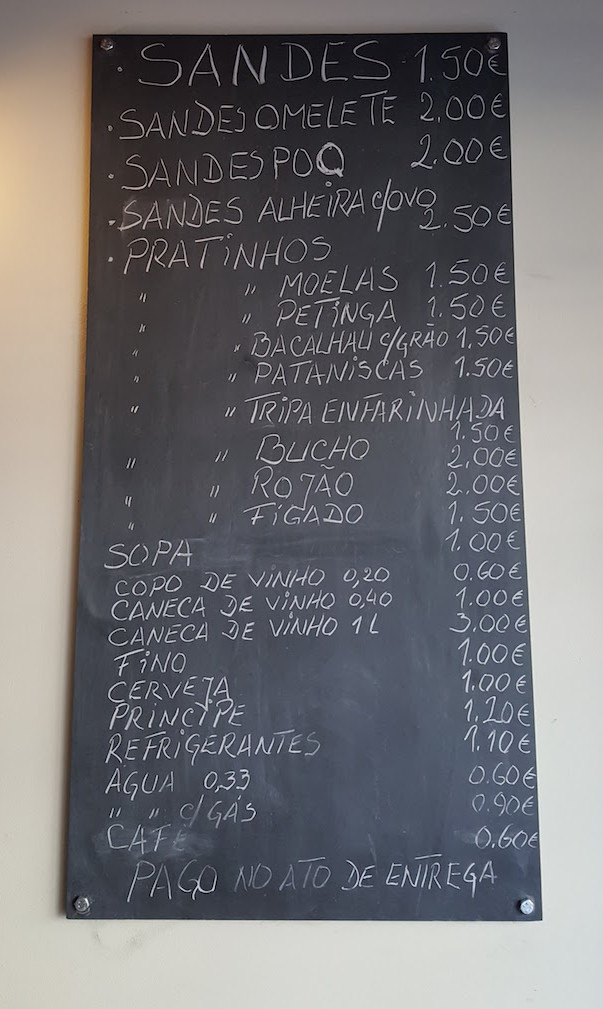 · SANDES 1.50€
· SANDES OMELETE 2.00€
· SANDES POQ 2.00€
· SANDES ALHEIRA c/OVO 2.50€
· PRATINHOS
" " MOELAS 1.50€
" " PETINGA 1.50€
" " BACALHAU c/GRÃO 1.50€
" " PATANISCAS 1.50€
" " TRIPA ENFARINHADA
1.50€
" " BUCHO 2,00€
" " ROJÃO 2.00€
" " FIGADO 1.50€
SOPA 1.00€
COPO DE VINHO 0,20 0.60€
CANECA DE VINHO 0,40 1.00€
CANECA DE VINHO 1L 3,00€
FINO 1.00€
CERVEJA 1.00€
PRINCIPE 1,20€
REFRIGERANTES 1.10€
AGUA 0,33 0.60€
" " c/GÁS 0.90€
CAFÉ 0.60€
PAGO NO ATO DE ENTREGA